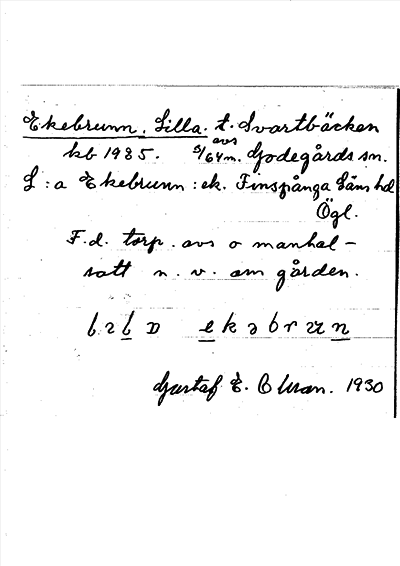 Ekebrunn, Lilla. t. Svartbäcken
avs
kb 1985. 5/64 m. Godegårds sn.
L:a Ekebrunn :ek. Finspånga läns hd
Ögl.
F.d. torp. avs o manhal-
satt n.v. om gården.
ekəbrun
Gustaf E. Olsson. 1930